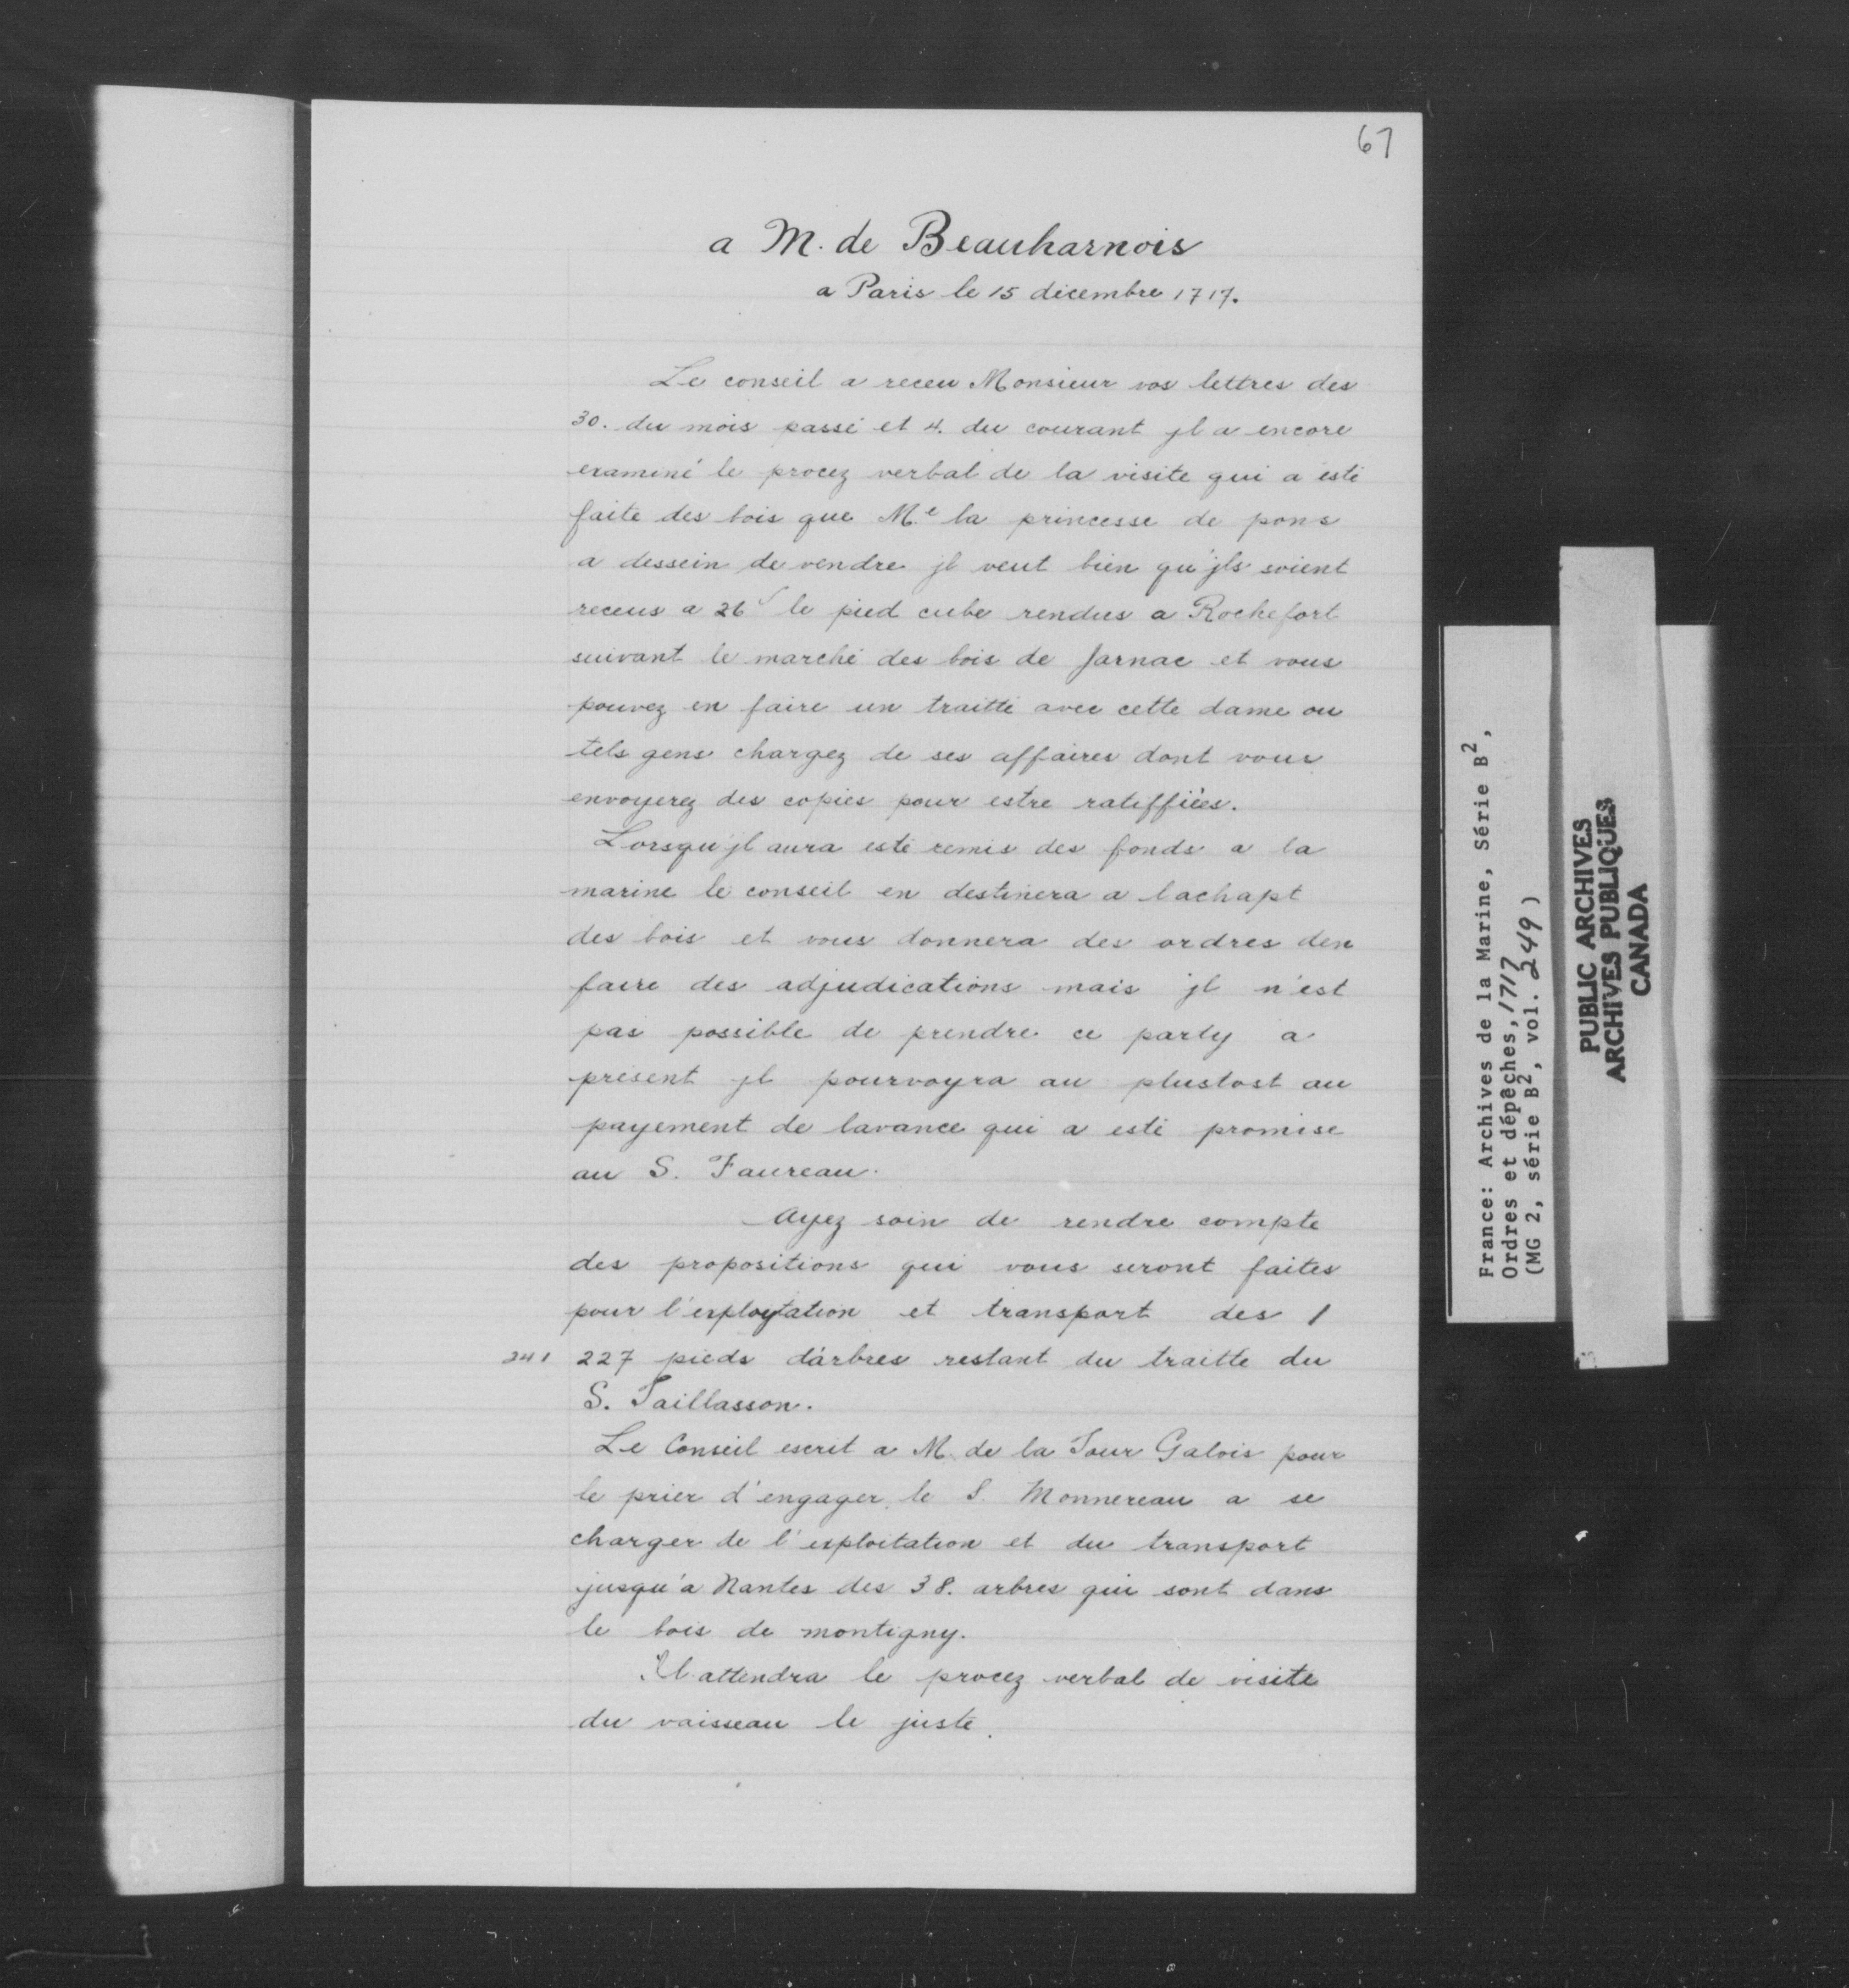 67
a M. de Beauharnois
a Paris le 15 décembre 1717.
Le conseil a receu Monsieur vos lettres des
30. du mois passé et 4. du courant jl a encore
examiné le procez verbal de la visite qui a esté
faite des bois que M.e la princesse de pons
a dessein de vendre jl veut bien qu'jls soient
receus a 26 s le pied cube rendus a Rochefort
suivant le marché des bois de Jarnac et vous
pouvez en faire un traitté avec cette dame ou
tels gens chargez de ses affaires dont vous
envoyerez des copies pour estre ratiffiées.
Lorsqu'jl aura esté remis des fonds a la
marine le conseil en destinera a lachapt
des bois et vous donnera des ordres den
faire des adjudications mais jl n'est
pas possible de prendre ce party a
présent jl pourvoyra au plustost au
payement de lavance qui a esté promise
au S. Faureau.
Ayez soin de rendre compte
des propositions qui vous seront faites
pour l'exploytation et transport des /
241 227 pieds d'arbres restant du traitte du
S. Taillasson.
Le Conseil escrit a M. de la Tour Galois pour
le prier d'engager le S. Monnereau a se
charger de l'exploitation et du transport
jusqu'a Nantes des 38. arbres qui sont dans
le bois de montigny.
Il attendra le procez verbal de visite
du vaisseau le juste.
France: Archives de la Marine, Série B2,
Ordres et dépêches, 1717
(MG 2, série B2, vol. 249)
PUBLIC ARCHIVES
ARCHIVES PUBLIQUES
CANADA